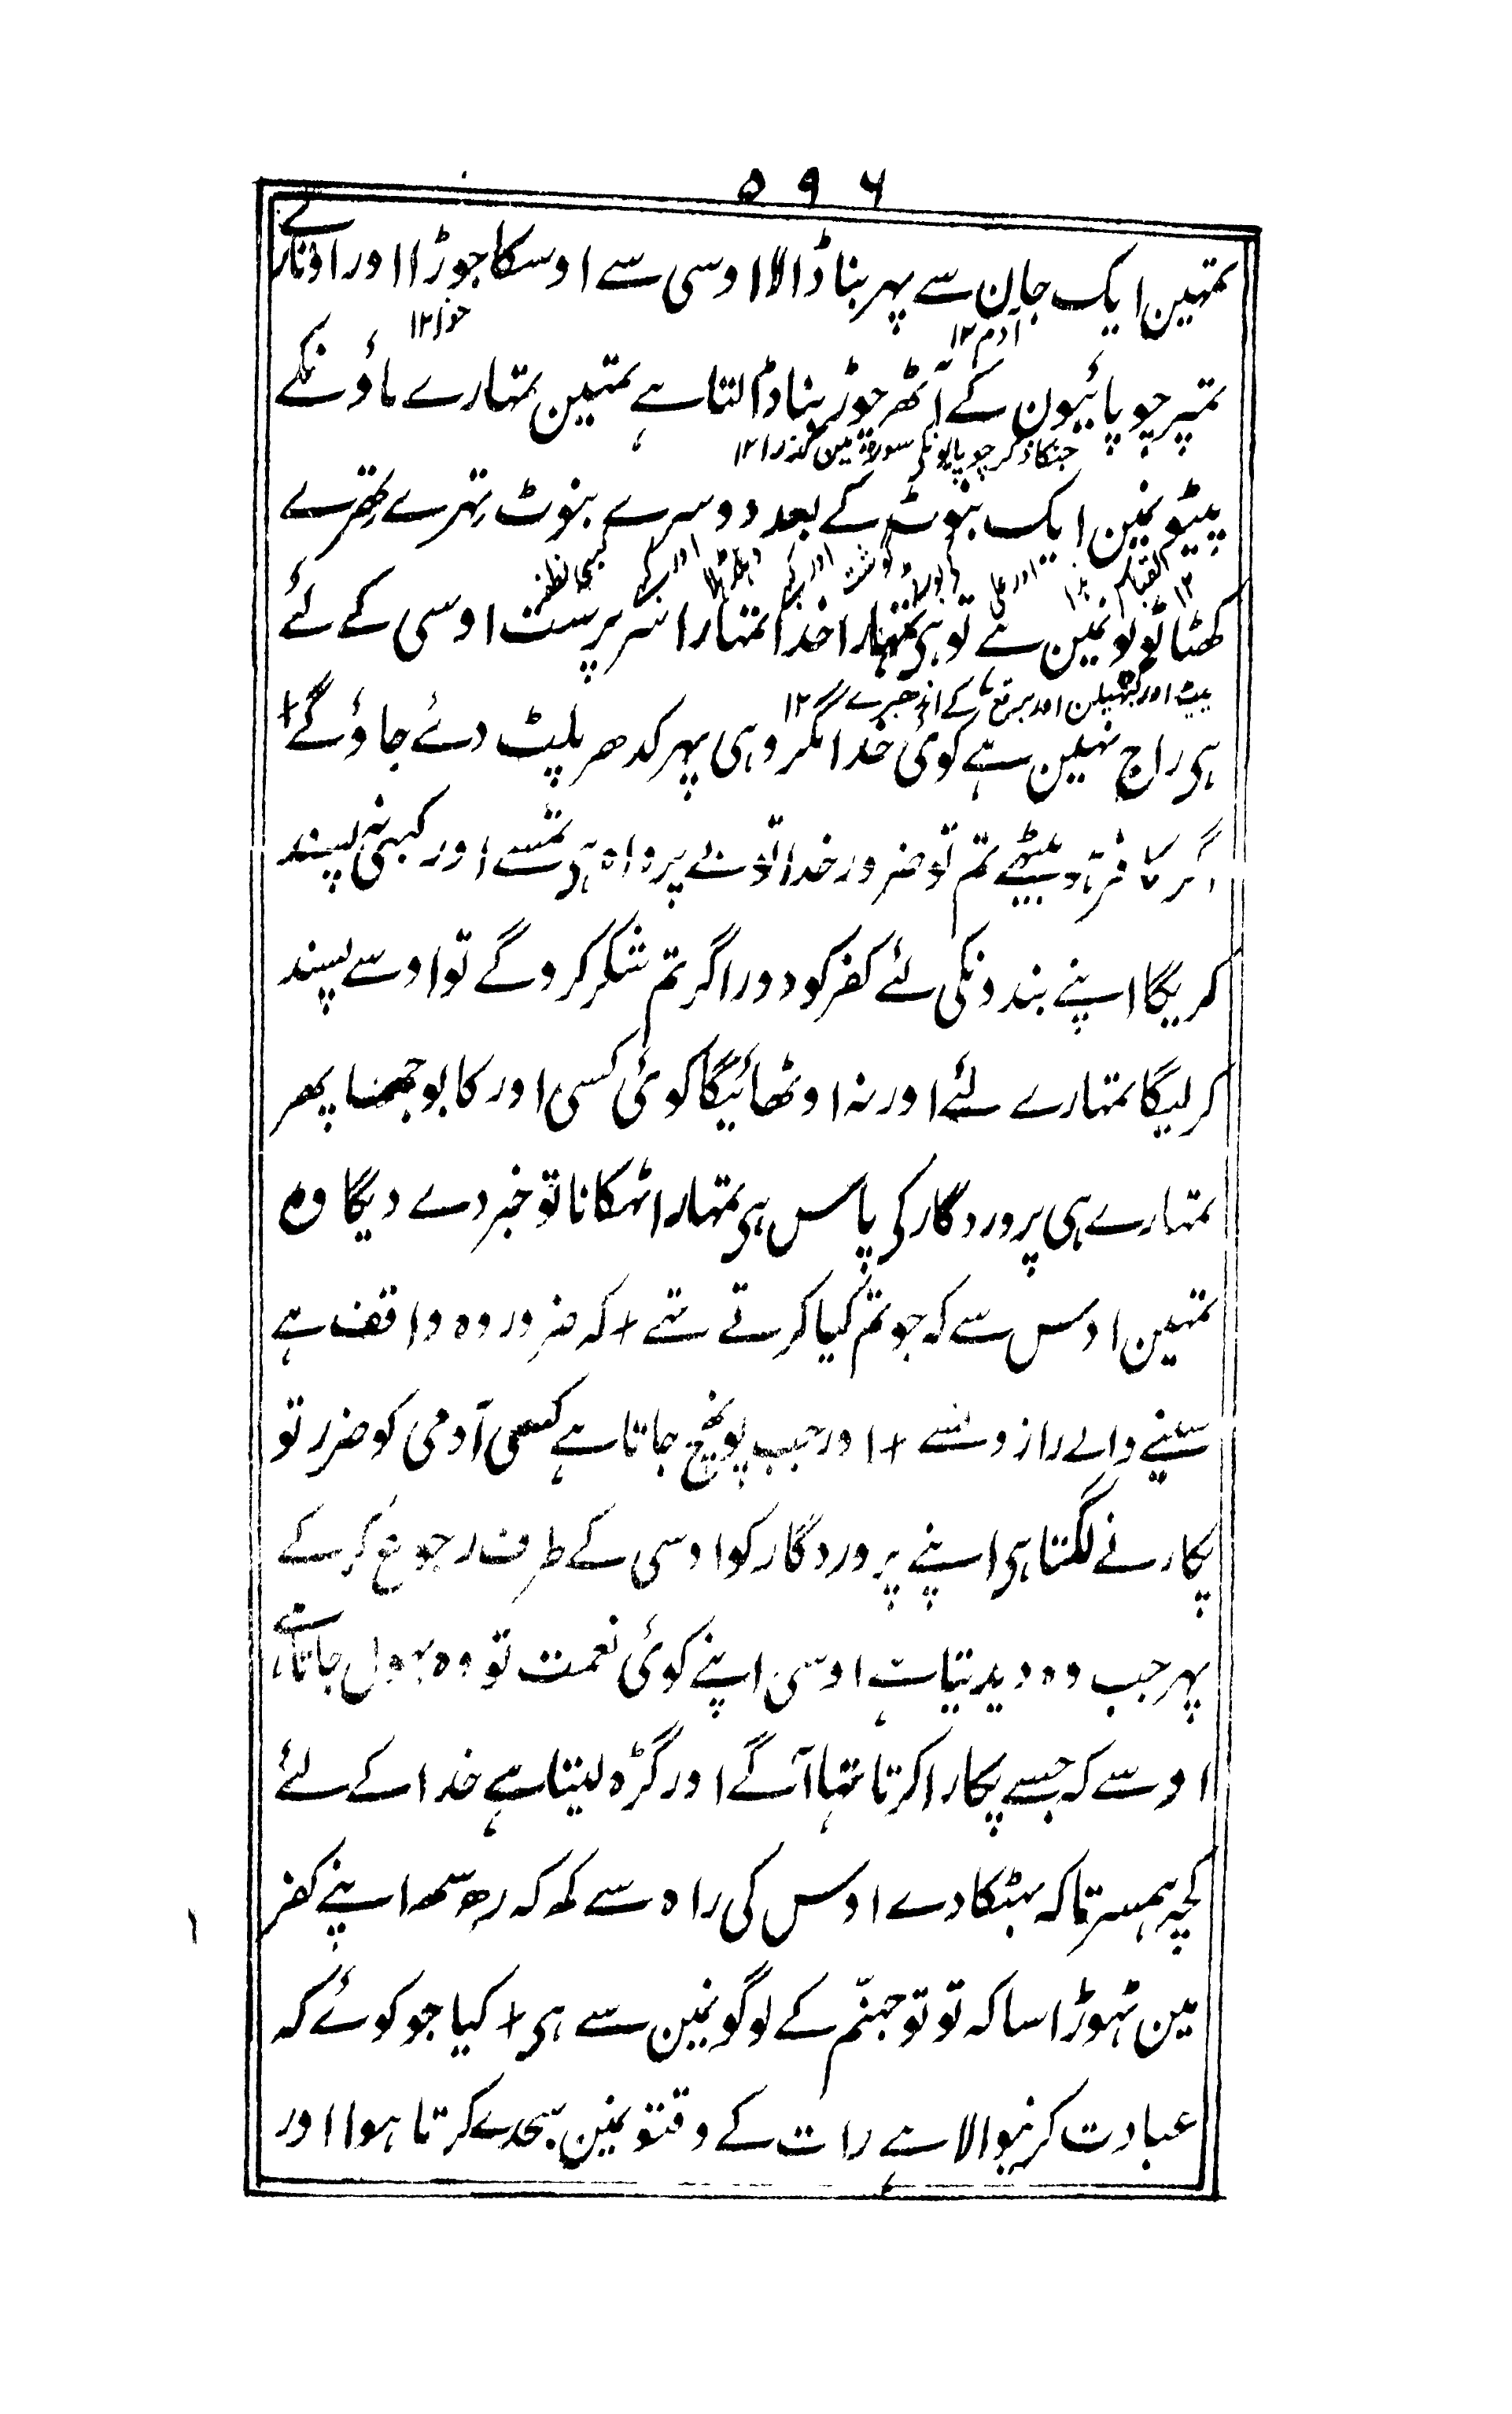 ۵۹۶
تمہین ایک جان سے پہر بنا ڈالا اوسی سے اوسکا جوڑا اور اوتارے
آدم ۱۲ حوا ۱۲
تمپر چوپائیون کے آٹھ جوڑ بنا ڈالتا ہے تمہین تمہارے ماؤنکے
جنکا ذکر چوپایونکے سورۃ مین گذرا ۱۲
پیٹونمین ایک بنوٹ کے بعد دوسرے بنوٹ تہرے تہرے
کبھی نطفہ اور کبھی گوشت اور
کھٹاٹوپونمین سے تو ہی تمہارا خدا تمہارا سرپرست اوسی کے لئے
پیٹ اور کے اندھیرے ۱۲
ہی راج نہین ہے کوئی خدا مگر وہی پہر کدھر پلٹ دئے جاؤگے +
اگر کافر ہو بیٹھے تم تو ضرور خدا تو بے پرواہ ہی تمسے اور کبہی نہ پسند
کریگا اپنے بندونکی لئے کفر کو دور اگر تم شکر کروگے تو اوسے پسند
کرلیگا تمہارے لئے اور نہ اوٹھائیگا کوئی کسی اور کا بوجھنا پھر
تمہارے ہی پروردگار کی پاس ہی تمہارا ٹہکانا تو خبر دے دیگا وہ
تمہین اوس سے کہ جو تم کیا کرتے تہے + کہ ضرور وہ واقف ہے
سینے والے رازونسے + اور جب پونہچ جاتا ہے کسی آدمی کو ضرر تو
پکارنے لگتا ہی اپنے پروردگار کو اوسی کے طرف رجوع کرکے
پہر جب وہ دیدیتا ہے اوسی اپنے کوئی نعمت تو وہ بہول جاتا ہے
اوسے کہ جسے پکارا کرتا تہا آگے اور گڑہ لیتا ہے خدا کے لئے
کچہ ہمسر تاکہ بہٹکا دے اوس کی راہ سے کہ کہ رہ سہ اپنے کفر
مین تہوڑا سا کہ تو تو جہنّم کے لوگونمین سے ہی + کیا جو کوئے کہ
عبادت کرنیوالا ہے رات کے وقتونمین سجدے کرتا ہوا اور